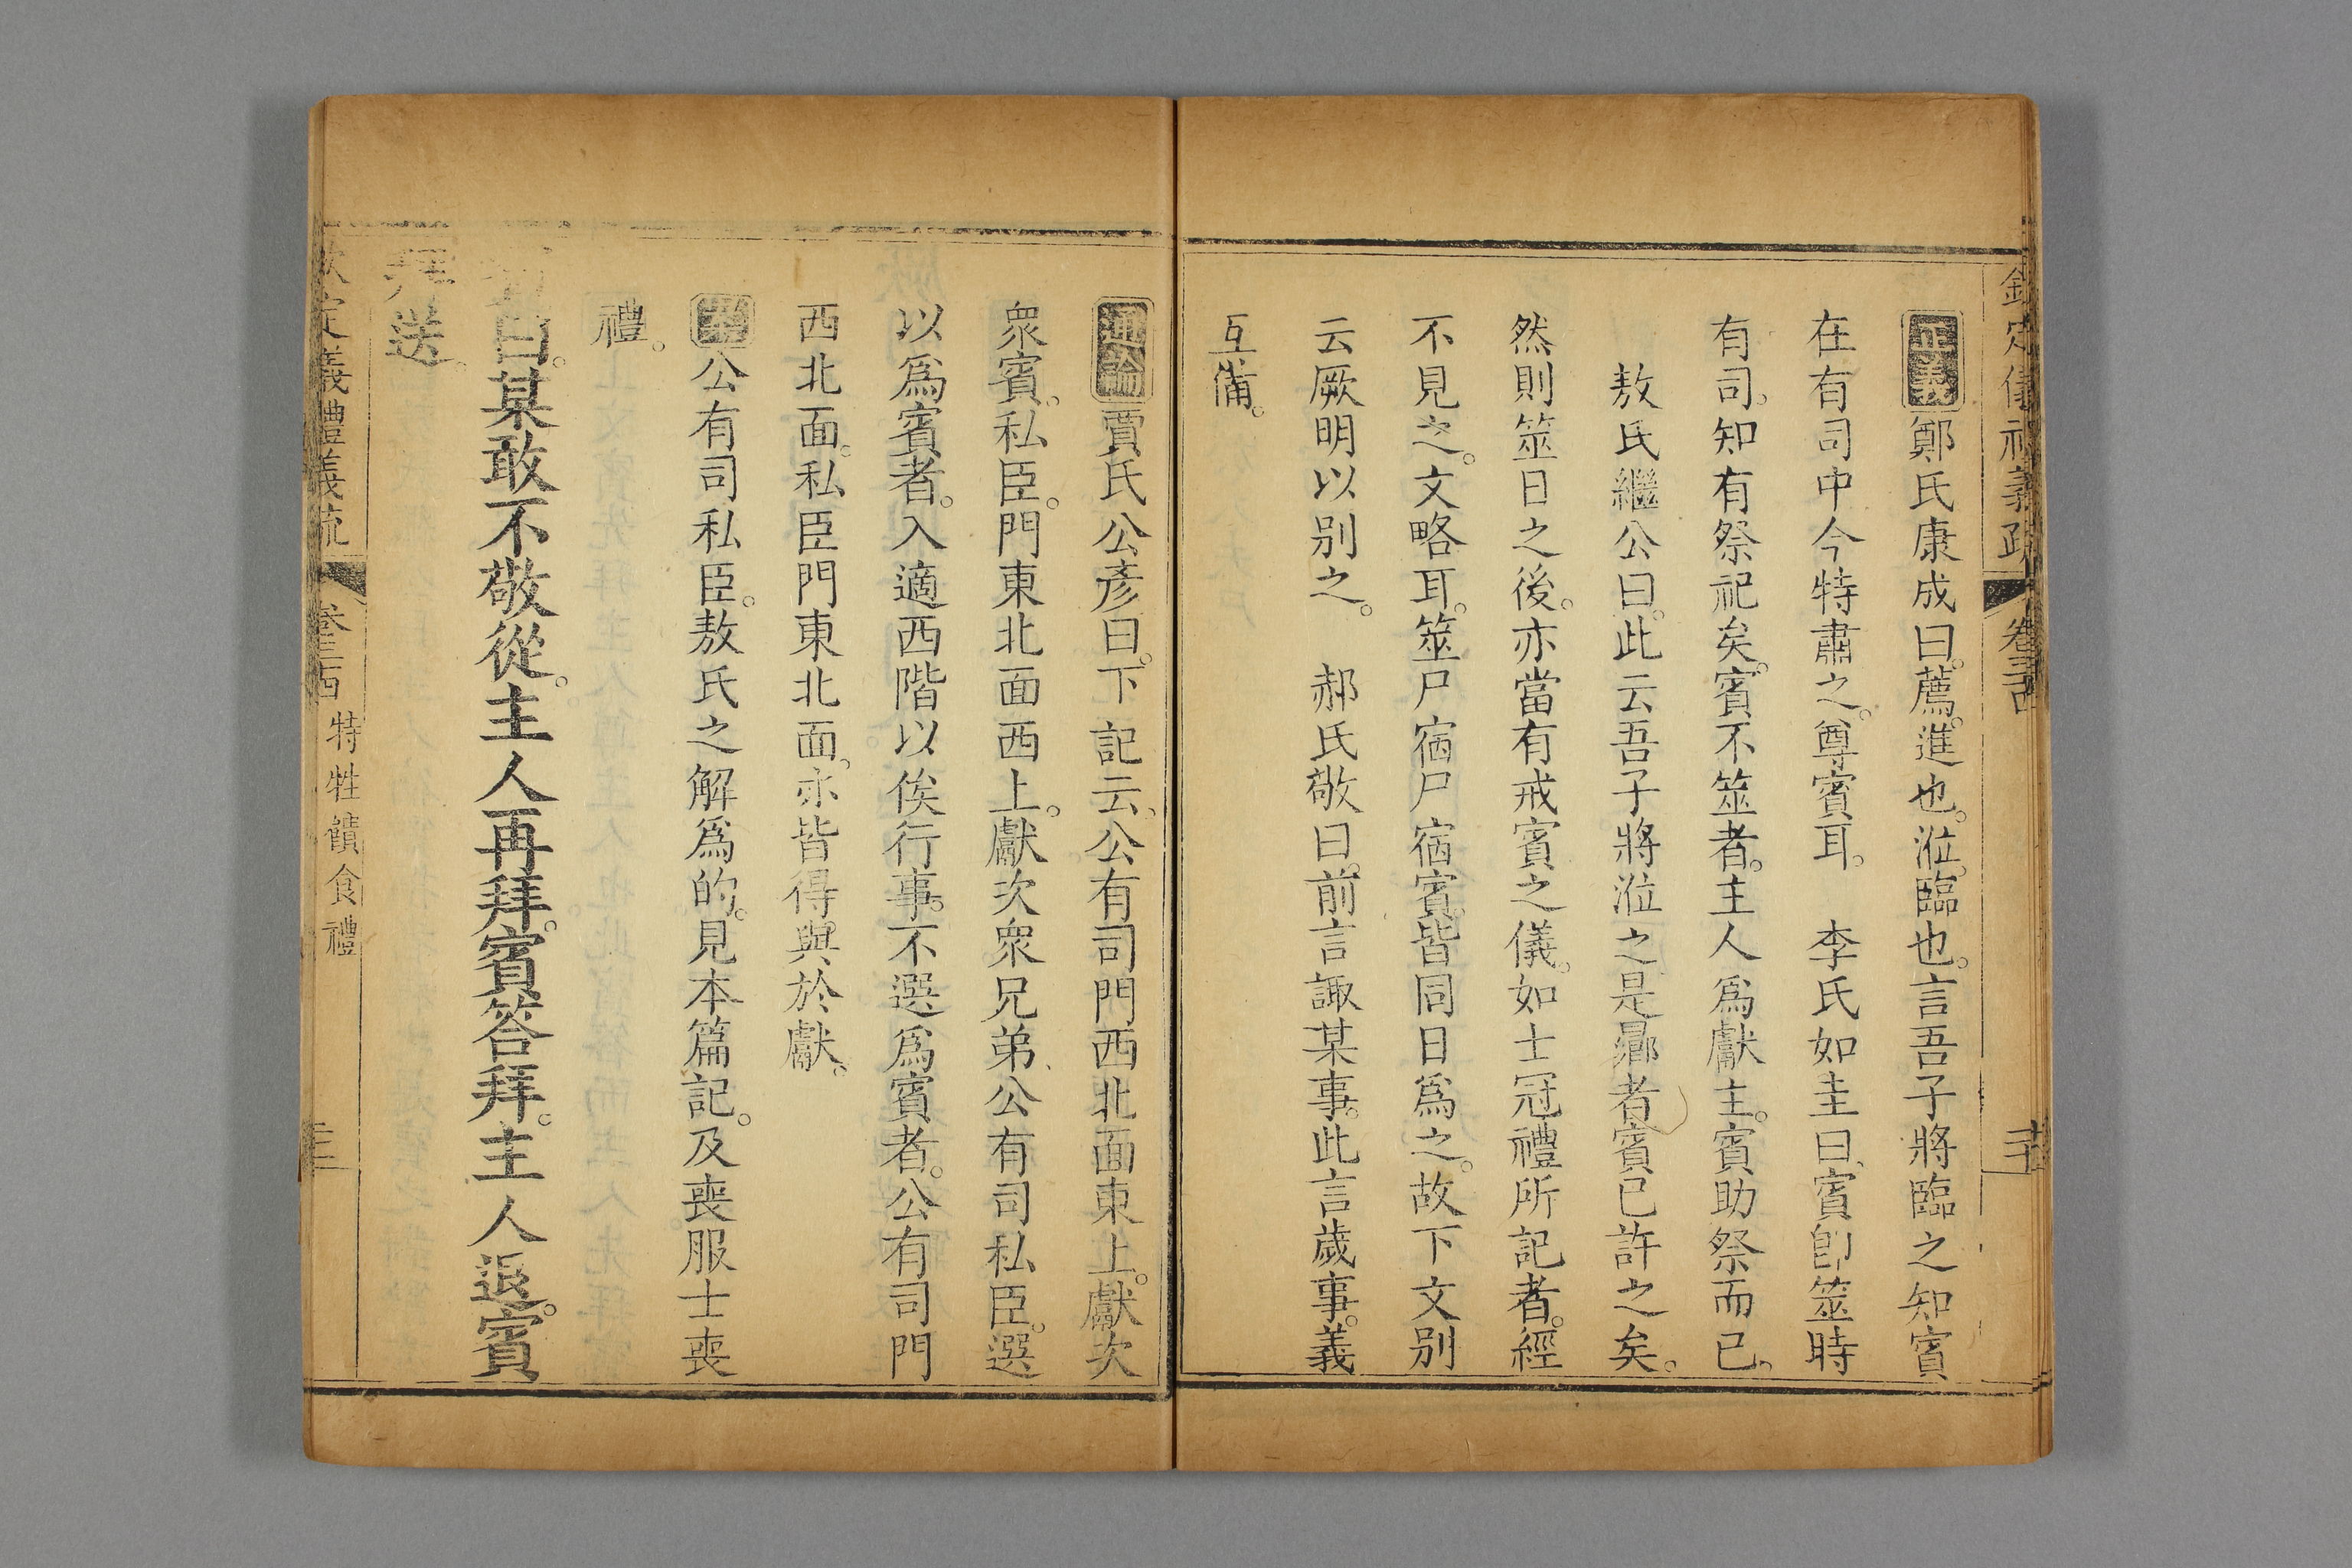 正義鄭氏康成曰薦進也涖臨也言吾子將臨之知賓
在有司中今特肅之尊賓耳　李氏如圭曰賓卽筮時
有司知有祭祀矣賓不筮者主人爲獻主賓助祭而已
敖氏繼公曰此云吾子將涖之是曏者賓已許之矣
然則筮日之後亦當有戒賓之儀如士冠禮所記者經
不見之文略耳筮尸宿尸宿賓皆同日爲之故下文別
云厥明以別之　郝氏敬曰前言諏某事此言歲事義
互備
通論賈氏公彥曰下記云公有司門西北面東上獻次
衆賓私臣門東北面西上獻次衆兄弟公有司私臣選
以爲賓者入適西階以俟行事不選爲賓者公有司門
西北面私臣門東北面亦皆得與於獻
公有司私臣敖氏之解爲的見本篇記及喪服士喪
禮
曰某敢不敬從主人再拜賓答拜主人退賓
拜送
欽定義禮義疏　卷三十四　特牲饋食禮